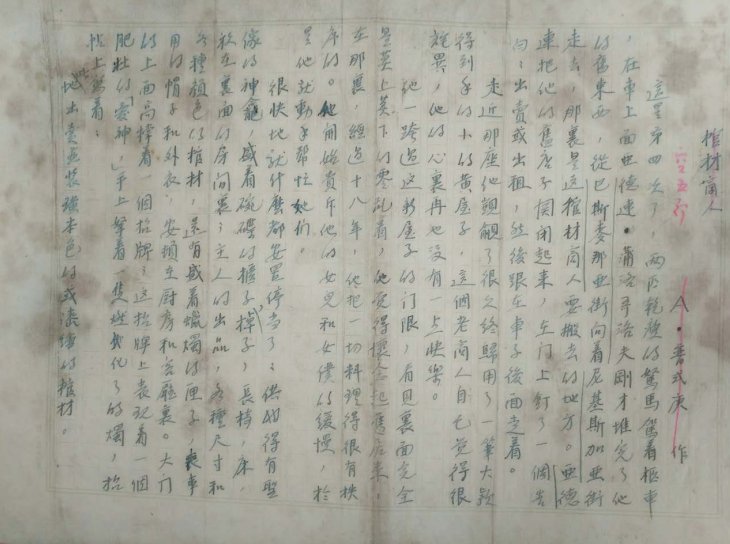 棺材商人
A·普式庚 作
這是第四次了，兩匹乾瘦的駑馬駕着柩車
，在車上面亞德連·蒲洛哥洛夫剛才堆完了他
的舊東西，從巴斯委那亞街向着尼基斯加亞街
走去，那裏是這棺材商人要搬去的地方。亞德
連把他的舊店子関閉起來，在门上釘了一個告
白：出賣或出租，然後跟在車子後面走着。
走近那座他覬覦了很久終歸用了一筆大款
得到手的小的黄屋子，這個老商人自己覺得很
詫異，他的心裏再也没有一点快樂。
他一跨過這新屋子的门限，看見裏面完全
是莫上莫下的零乱着，他覺得懷念起舊店來，
在那裏，經過十八年，他把一切料理得很有秩
序的。他開始責斥他的女兒和女僕的緩慢，於
是他就動手帮忙她們。
很快地就什麼都安置停当了：供奉得有聖
像的神龕，盛着碗碟的櫃子，棹子，長椅，床，
放在裏面的房间裏；主人的出品，各種尺寸和
各種顔色的棺材，還有盛着蠟燭的匣子，喪事
用的帽子和外衣，安頓在厨房和客廳裏。大门
的上面高撑着一個招牌；這招牌上表現着一個
肥壯的「愛神」，手上拏着一隻熄化了的燭，招
牌上寫着：
此地出賣並裝璜本色的或漆過的棺材。